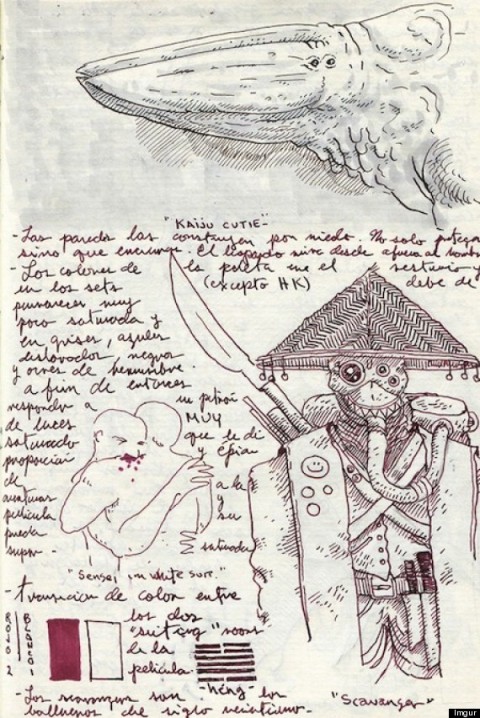 "KAIJU CUTIE"
- Las paredes las construyen por miedo. No solo protegen
sino que encierran. El
- Los colores de la paleta en el vestuario y
en los sets (excepto HK) debe de
permanecer muy
poco saturada y
en grises, azules
deslavados, negros
y ocres de herrumbre.
a fin de entonces
responder a un patrón
de luces MUY
saturado que le dé
proporción y épica
de a la
aventuras y
película su
pueda
"Sensei in white suit."
- transición de color entre
ROJO 2
BLANCO 1
los dos
"suit up" rooms
de la
película.
- Los scavengers son los
balleneros de siglo veintiuno-
"Scavenger"
Imgur